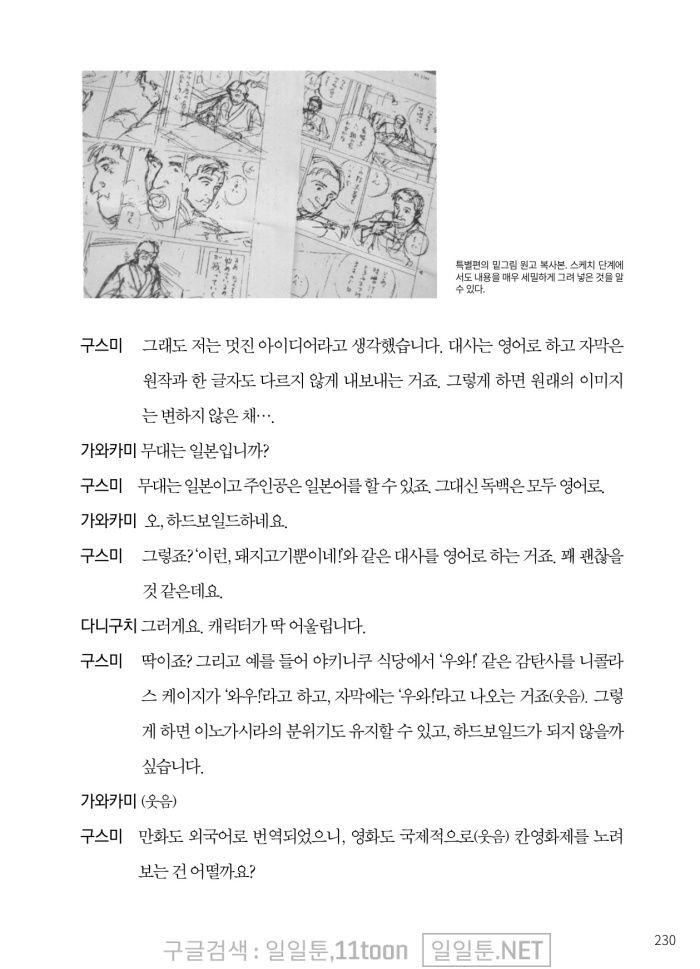 특별편의 밑그림 원고 복사본. 스케치 단계에
서도 내용을 매우 세밀하게 그려 넣은 것을 알
수 있다.
구스미 그래도 저는 멋진 아이디어라고 생각했습니다. 대사는 영어로 하고 자막은
원작과 한 글자도 다르지 않게 내보내는 거죠. 그렇게 하면 원래의 이미지
는 변하지 않은 채….
가와카미 무대는 일본입니까?
구스미 무대는 일본이고 주인공은 일본어를 할 수 있죠. 그대신 독백은 모두 영어로.
가와카미 오, 하드보일드하네요.
구스미 그렇죠? ‘이런, 돼지고기뿐이네!’와 같은 대사를 영어로 하는 거죠. 꽤 괜찮을
것 같은데요.
다니구치 그러게요. 캐릭터가 딱 어울립니다.
구스미 딱이죠? 그리고 예를 들어 야키니쿠 식당에서 ‘우와!’ 같은 감탄사를 니콜라
스 케이지가 ‘와우!’라고 하고, 자막에는 ‘우와!’라고 나오는 거죠(웃음). 그렇
게 하면 이노가시라의 분위기도 유지할 수 있고, 하드보일드가 되지 않을까
싶습니다.
가와카미 (웃음)
구스미 만화도 외국어로 번역되었으니, 영화도 국제적으로(웃음) 칸영화제를 노려
보는 건 어떨까요?
230
구글검색 : 일일툰,11toon 일일툰.NET